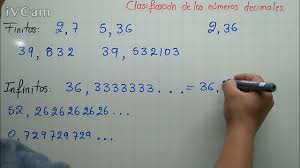 iVCam
Clasificación de los números decimales.
Finitos: 2,7 5,36 2,36
39,832 39,532103
Infinitos: 36,3333333... = 36,
52,26262626...
0,729729729...